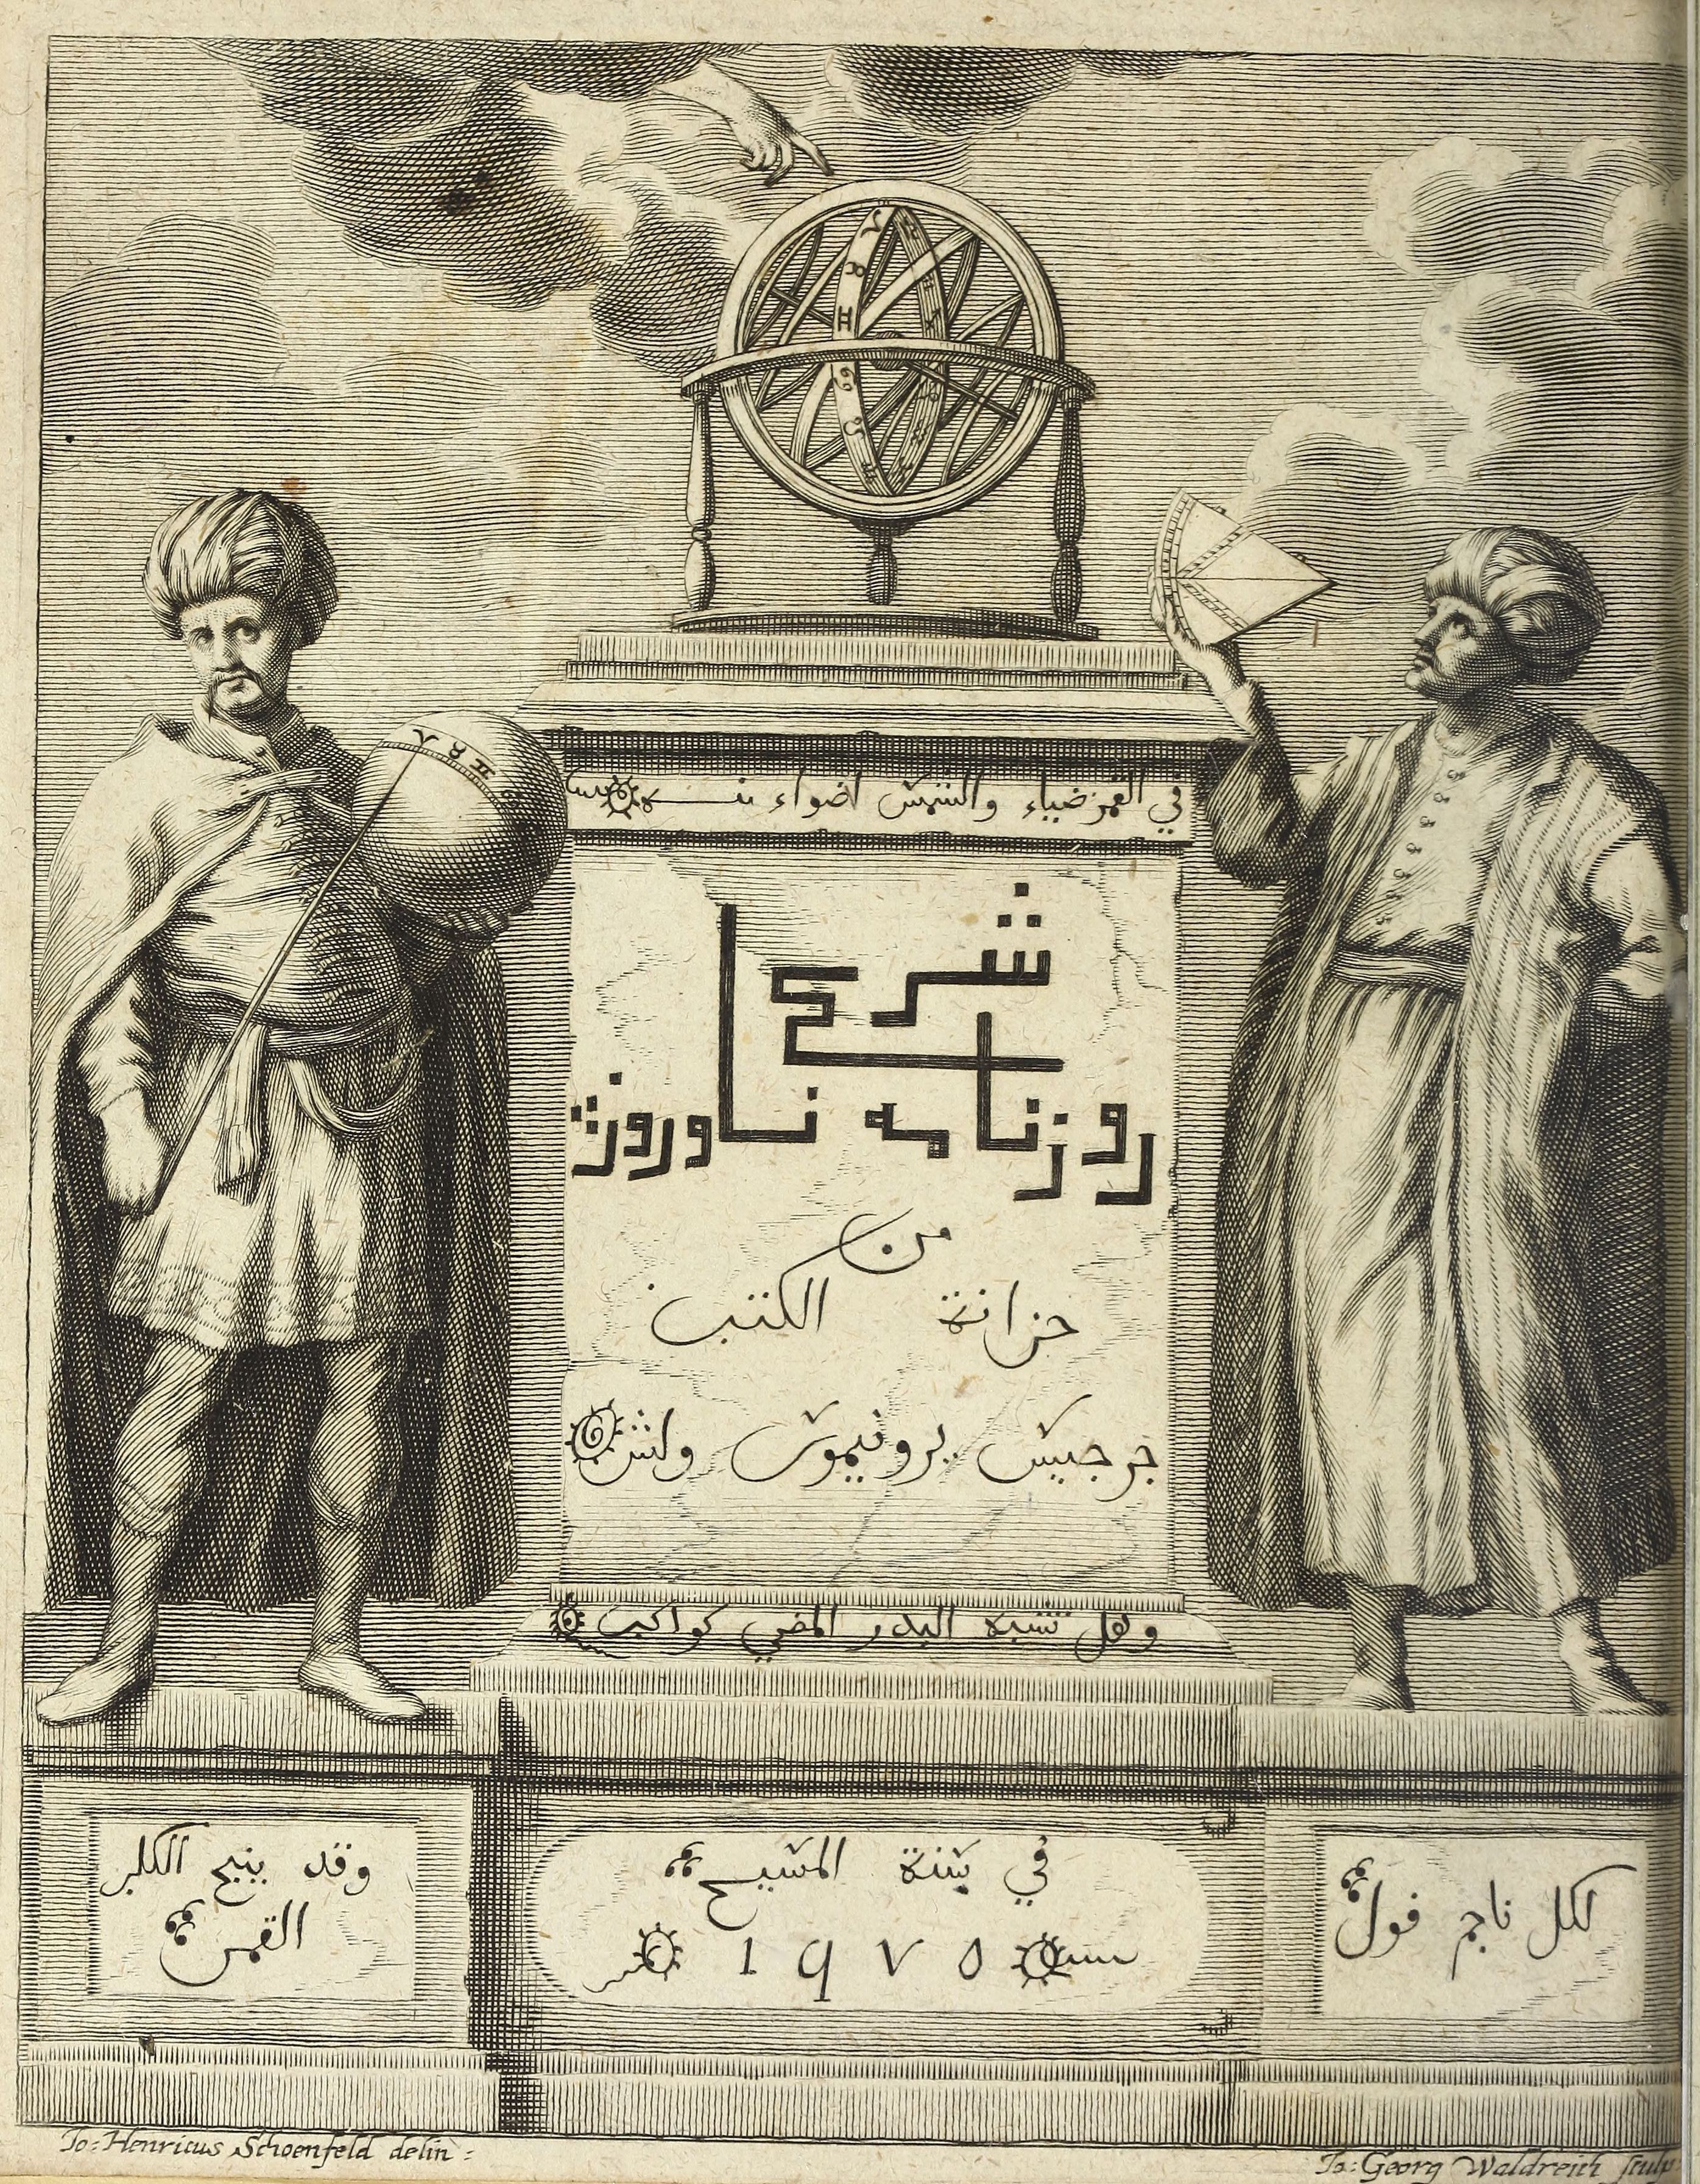 في القمر ضياء والشمس اضواء منه
شرح
روزنامه ناوروز
من
خزانة الكتب
جرجيس يرونيموس ولش
وهل تشبه البدر المضي كواكب
وقد ينبح الكلب
القمر
في سنة المسيح
١ ٩ ٧ ٥
لكل ناجم فول
Jo: Henricus Schoenfeld delin:
Jo: Georg Waldreich sculps